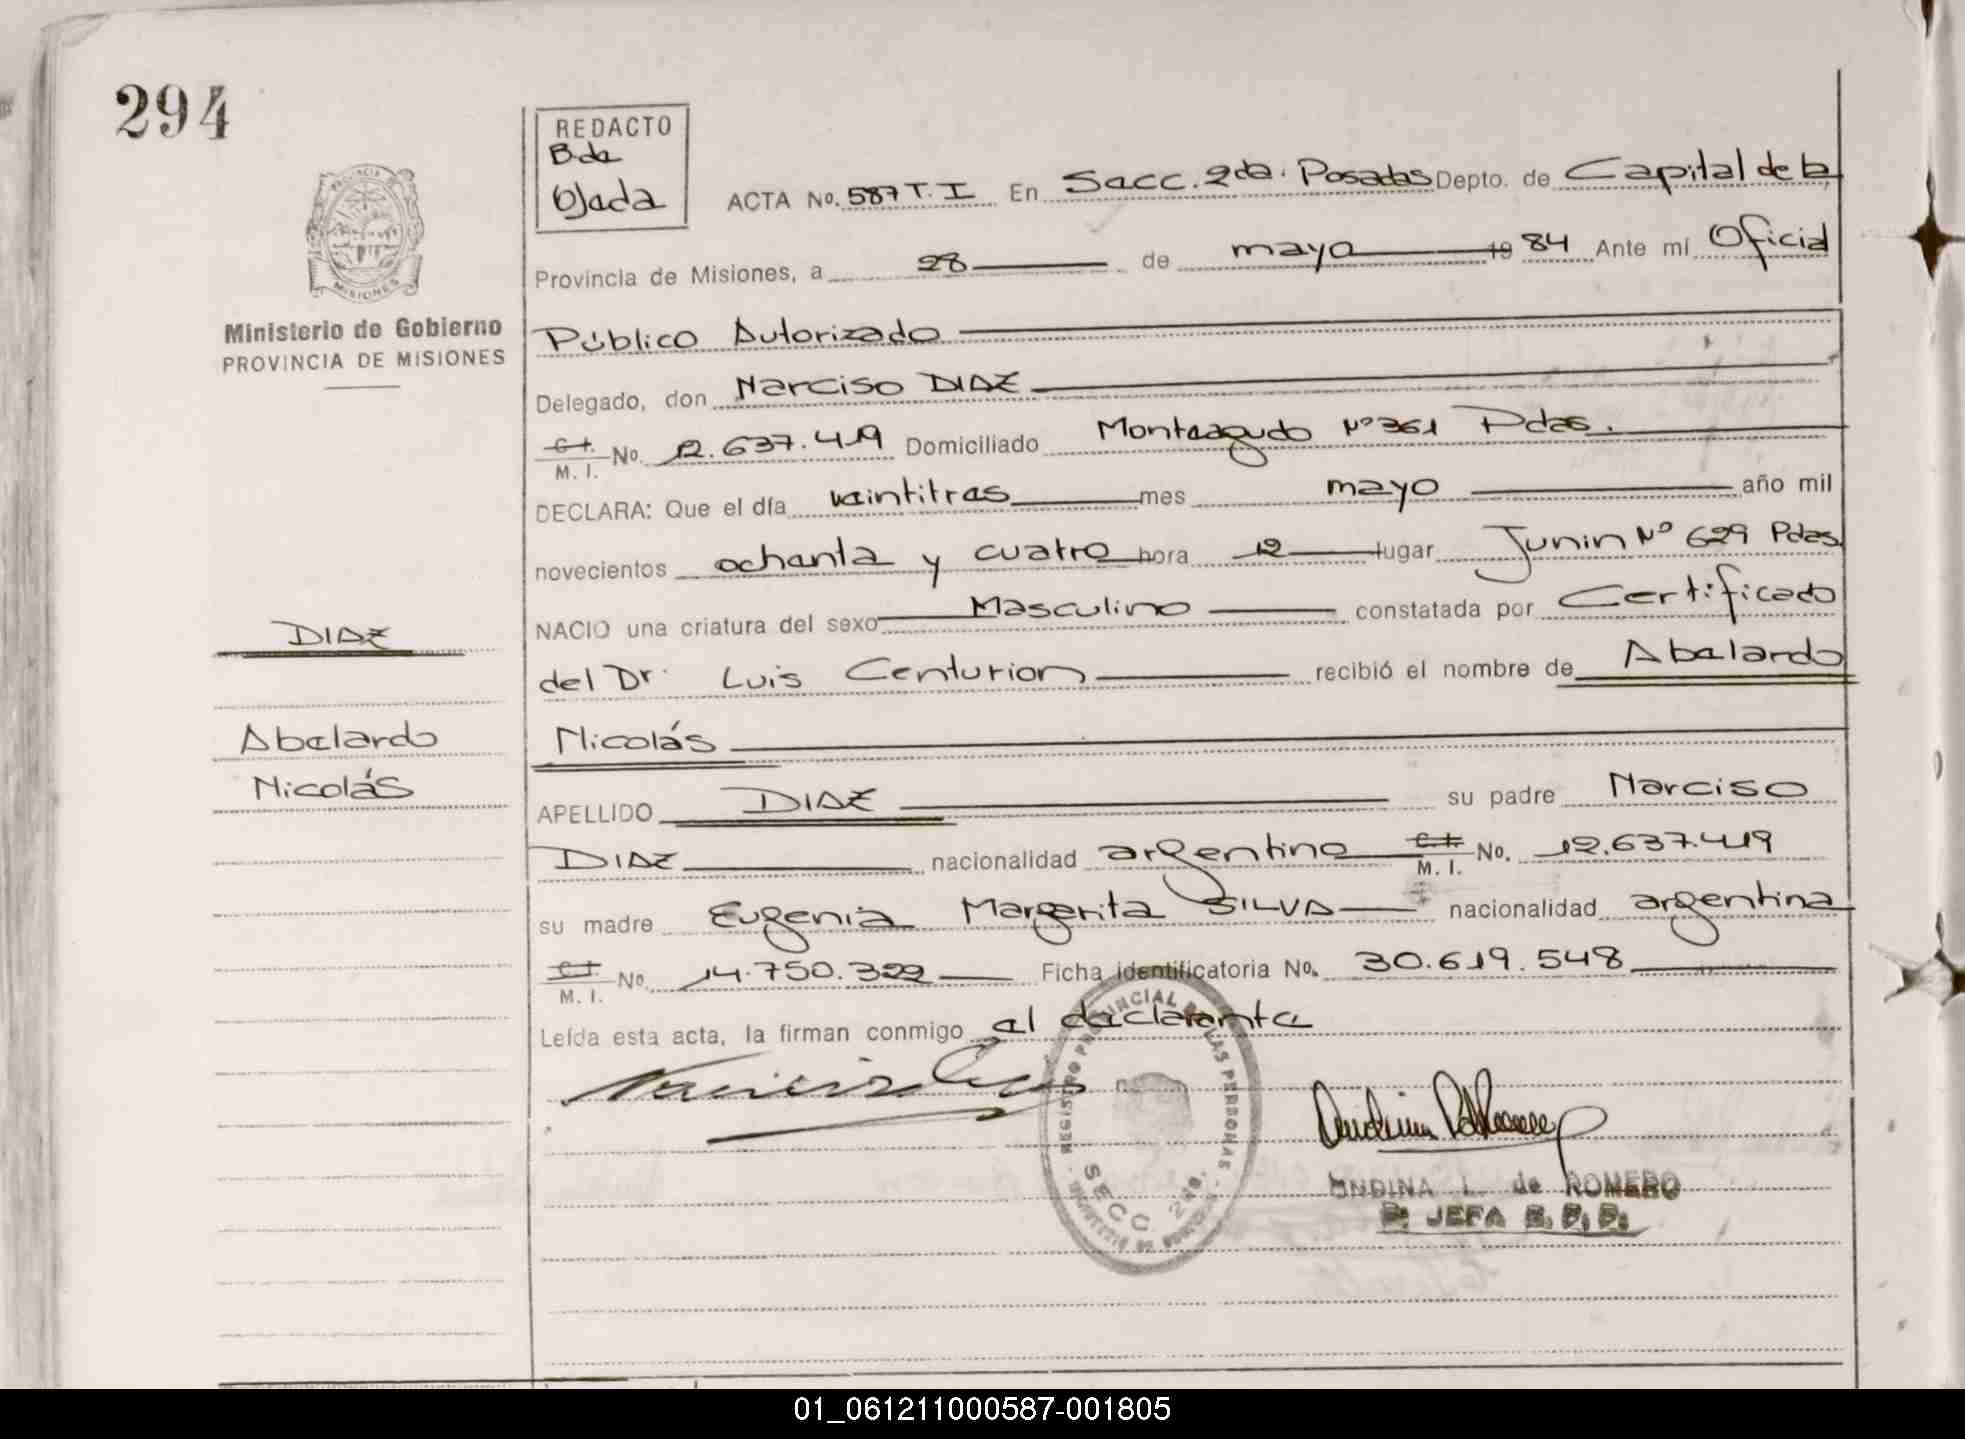 294
PROVINCIA DE
MISIONES
Ministerio de Gobierno
PROVINCIA DE MISIONES
DIAZ
Abelardo
Nicolás
REDACTO
B. de
Ojeda
ACTA No. 587 T. I En Secc. 2da. Posadas Depto. de Capital de la
Provincia de Misiones, a 28 de mayo 19 84 Ante mí Oficial
Público Autorizado
Delegado, don Narciso DIAZ
C. I. M. I. No. 12.637.419 Domiciliado Monteagudo Nº 361 Pdas.
DECLARA: Que el día veintitres mes mayo año mil
novecientos ochenta y cuatro hora 12 lugar Junin Nº 629 Pdas.
NACIO una criatura del sexo Masculino constatada por Certificado
del Dr. Luis Centurion recibió el nombre de Abelardo
Nicolás
APELLIDO DIAZ su padre Narciso
DIAZ nacionalidad argentino C. I. M. I. No. 12.637.419
su madre Eugenia Margarita SILVA nacionalidad argentina
C. I. M. I. No. 14.750.322 Ficha Identificatoria No. 30.619.548
Leída esta acta, la firman conmigo el declarante
REGISTRO PROVINCIAL DE LAS PERSONAS
SECC. 2da.
UNDINA L. de ROMERO
JEFA
01_061211000587-001805